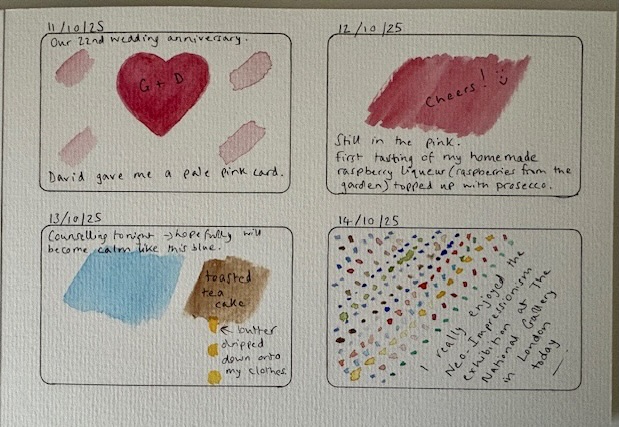 11/10/25
Our 22nd wedding anniversary.
G + D
David gave me a pale pink card.
12/10/25
Cheers!
Still in the pink.
First tasting of my homemade
raspberry liqueur (raspberries from the
garden) topped up with prosecco.
13/10/25
Counselling tonight → hopefully will
become calm like this blue.
toasted
tea
cake
← butter
dripped
down onto
my clothes.
14/10/25
I really enjoyed the
Neo-Impressionism
exhibition at The
National Gallery
in London
today